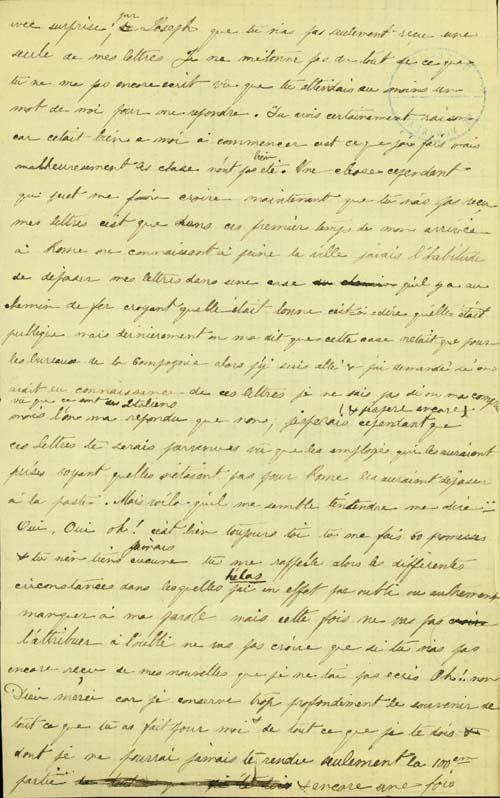 avec surprise, par Joseph que tu n'as pas seulement reçu une
seule de mes lettres Je ne m'etonne pas du tout de ce que
tu ne ma pas encore ecrit vu que tu attendais au moins un
mot de moi pour me repondre. Tu avais certainement raison
car cetait bien a moi à commencer est ce que j'ai fais mais
malheuresement les chose n'ont pas bien été. Une chose cependant
qui peut me faire croire maintenant que tu n'as pas reçu
mes lettres c'est que dans ces premier temps de mon arrivée
à Rome ne connaissant à peine la ville j'avais l'habitude
de deposer mes lettres dans une case du chemin qu'il y a au
chemin de fer croyant quelle était bonne cest à dire quelle était
publique mais dernierement on ma dit que cette case n'etait que pour
les bureaux de la Compagnie alors j'y suis allé & j'ai demandé si on
avait eu connaissance de ces lettres je ne sais pas si on ma compris
vu que ce sont des Italiens
mais l'on ma repondu que non, j'esperais (& j'espere encore) cependant que
ces lettres te serais parvenues vu que les employés qui les auraient
prises voyant quelles n'etaient pas pour Rome les auraient deposer
à la poste. Mais voila qu'il me semble t'entendre me dire
Oui, Oui oh! c'est bien toujours toi tu me fais 60 promesses
& tu n'en tiens jamais aucune tu me rappelle alors les differentes
circonstances dans lesquelles j'ai hélas en effet par oubli ou autrement
manquer à ma parole mais cette fois ne vas pas croire
l'attribuer à l'oubli ne vas pas croire que si tu n'as pas
encore reçu de mes nouvelles que je ne t'ai pas ecris Oh! non
Dieu merci car je conserve trop profondement le souvenir de
tout ce que tu as fait pour moi & de tout ce que je te dois &
dont je ne pourrai jamais te rendre seulement la 100em
partie & encore une fois